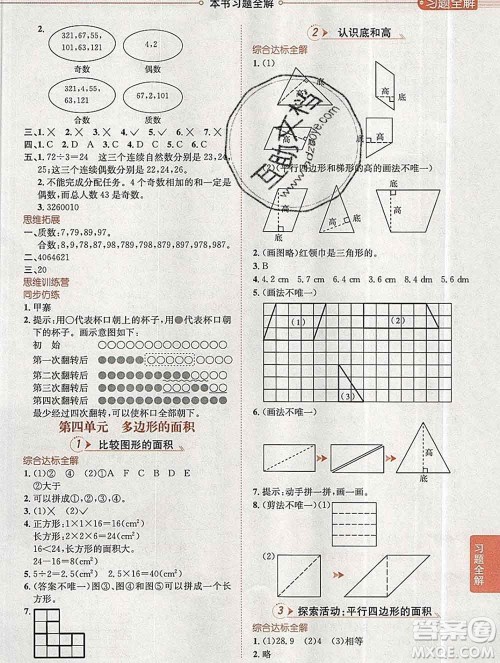 本书习题全解
习题全解
2.
321,67,55,
101,63,121
4,2
奇数
偶数
321,4,55,
63,121
67,2,101
合数
质数
三、1. × 2. × 3. × 4. ×
四、C A D B
五、1. 72÷3=24 这三个连续自然数分别是23,24,
25。
2. 不能完成分配任务。4个奇数相加的和一定是偶
数,而总人数43是奇数。
3. 3260010
思维拓展
一、质数:7,79,89,97。
合数:8,9,78,87,98,789,798,879,897,978,987。
二、4064621
三、20
思维训练营
同步仿练
1. 甲寨
2. 提示:用○代表杯口朝上的杯子,用●代表杯口朝
下的杯子。画示意图如下:
初 始
第一次翻转后
第二次翻转后
第三次翻转后
第四次翻转后
最少经过四次翻转,可以使杯口全部朝下。
第四单元 多边形的面积
1 比较图形的面积
综合达标全解
1. (1)② ④ (2)① A F C B D E
2. 可以拼成①,②,④。
3. ①
4. 正方形:1×1×16=16(cm²)
16<24,长方形的面积大。
长方形:1×1×24=24(cm²)
24-16=8(cm²)
5. 5÷2=2.5(cm) 2.5×2=5(cm²)
6. (答案不唯一)可以拼成①②③④⑤。
7.
2 认识底和高
综合达标全解
1. (1)
高
底
高
底
高
底
(2)(平行四边形和梯形的高的画法不唯一)
高
底
高
底
高
底
2. (画图略)红领巾是三角形的。
3. B
4. 4.2 cm 5.7 cm 4.2 cm 5.6 dm 4 dm
5. (画法不唯一)
(1)
(2)
(3)
6. (画法不唯一)
高
底
7. 提示:动手拼一拼,画一画。
8. (剪法不唯一)
(1)
(2)
3 探索活动:平行四边形的面积
综合达标全解
1. (1)28.9 (2)4 (3)相等
2. 略
习题全解
互助文档
作业帮
MXQE.COM